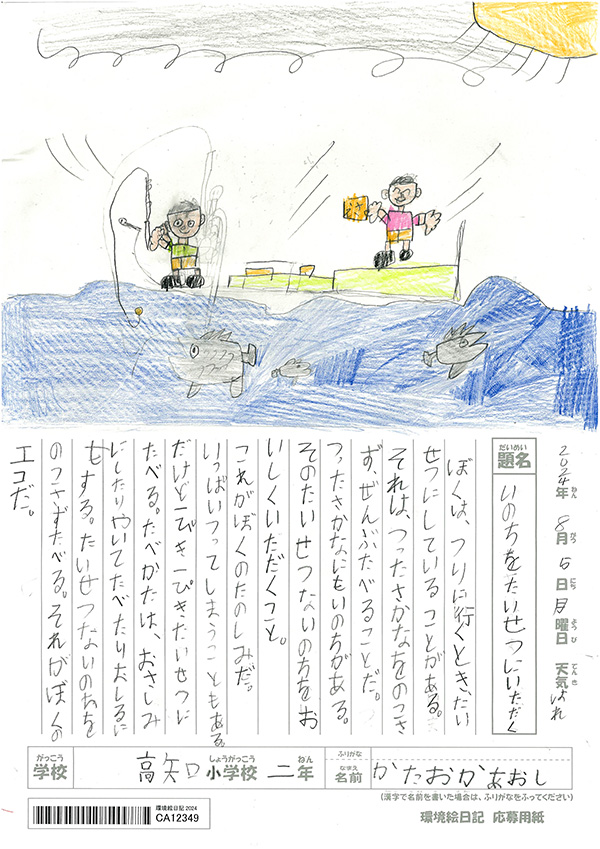 えさ
2024年 8月 5日 月曜日 天気 はれ
ねん がつ にち ようび てんき
だいめい
題名 いのちをたいせつにいただく
ぼくは、つりに行くとき、たい
せつにしていることがある。
それは、つったさかなをのこさ
ず、ぜんぶたべることだ。
つったさかなにもいのちがある。
そのたいせつないのちをお
いしくいただくこと。
これがぼくのたのしみだ。
いっぱいつってしまうこともある。
だけど一ぴき一ぴきたいせつに
たべる。たべかたは、おさしみ
にしたりやいてたべたりおしるに
もする。たいせつないのちを
のこさずたべる。それがぼくの
エコだ。
がっこう しょうがっこう ねん ふりがな
学校 高矢口小学校 二年 なまえ 名前 かたおかあおし
(漢字で名前を書いた場合は、ふりがなをふってください)
環境絵日記 2024
CA12349
環境絵日記 応募用紙